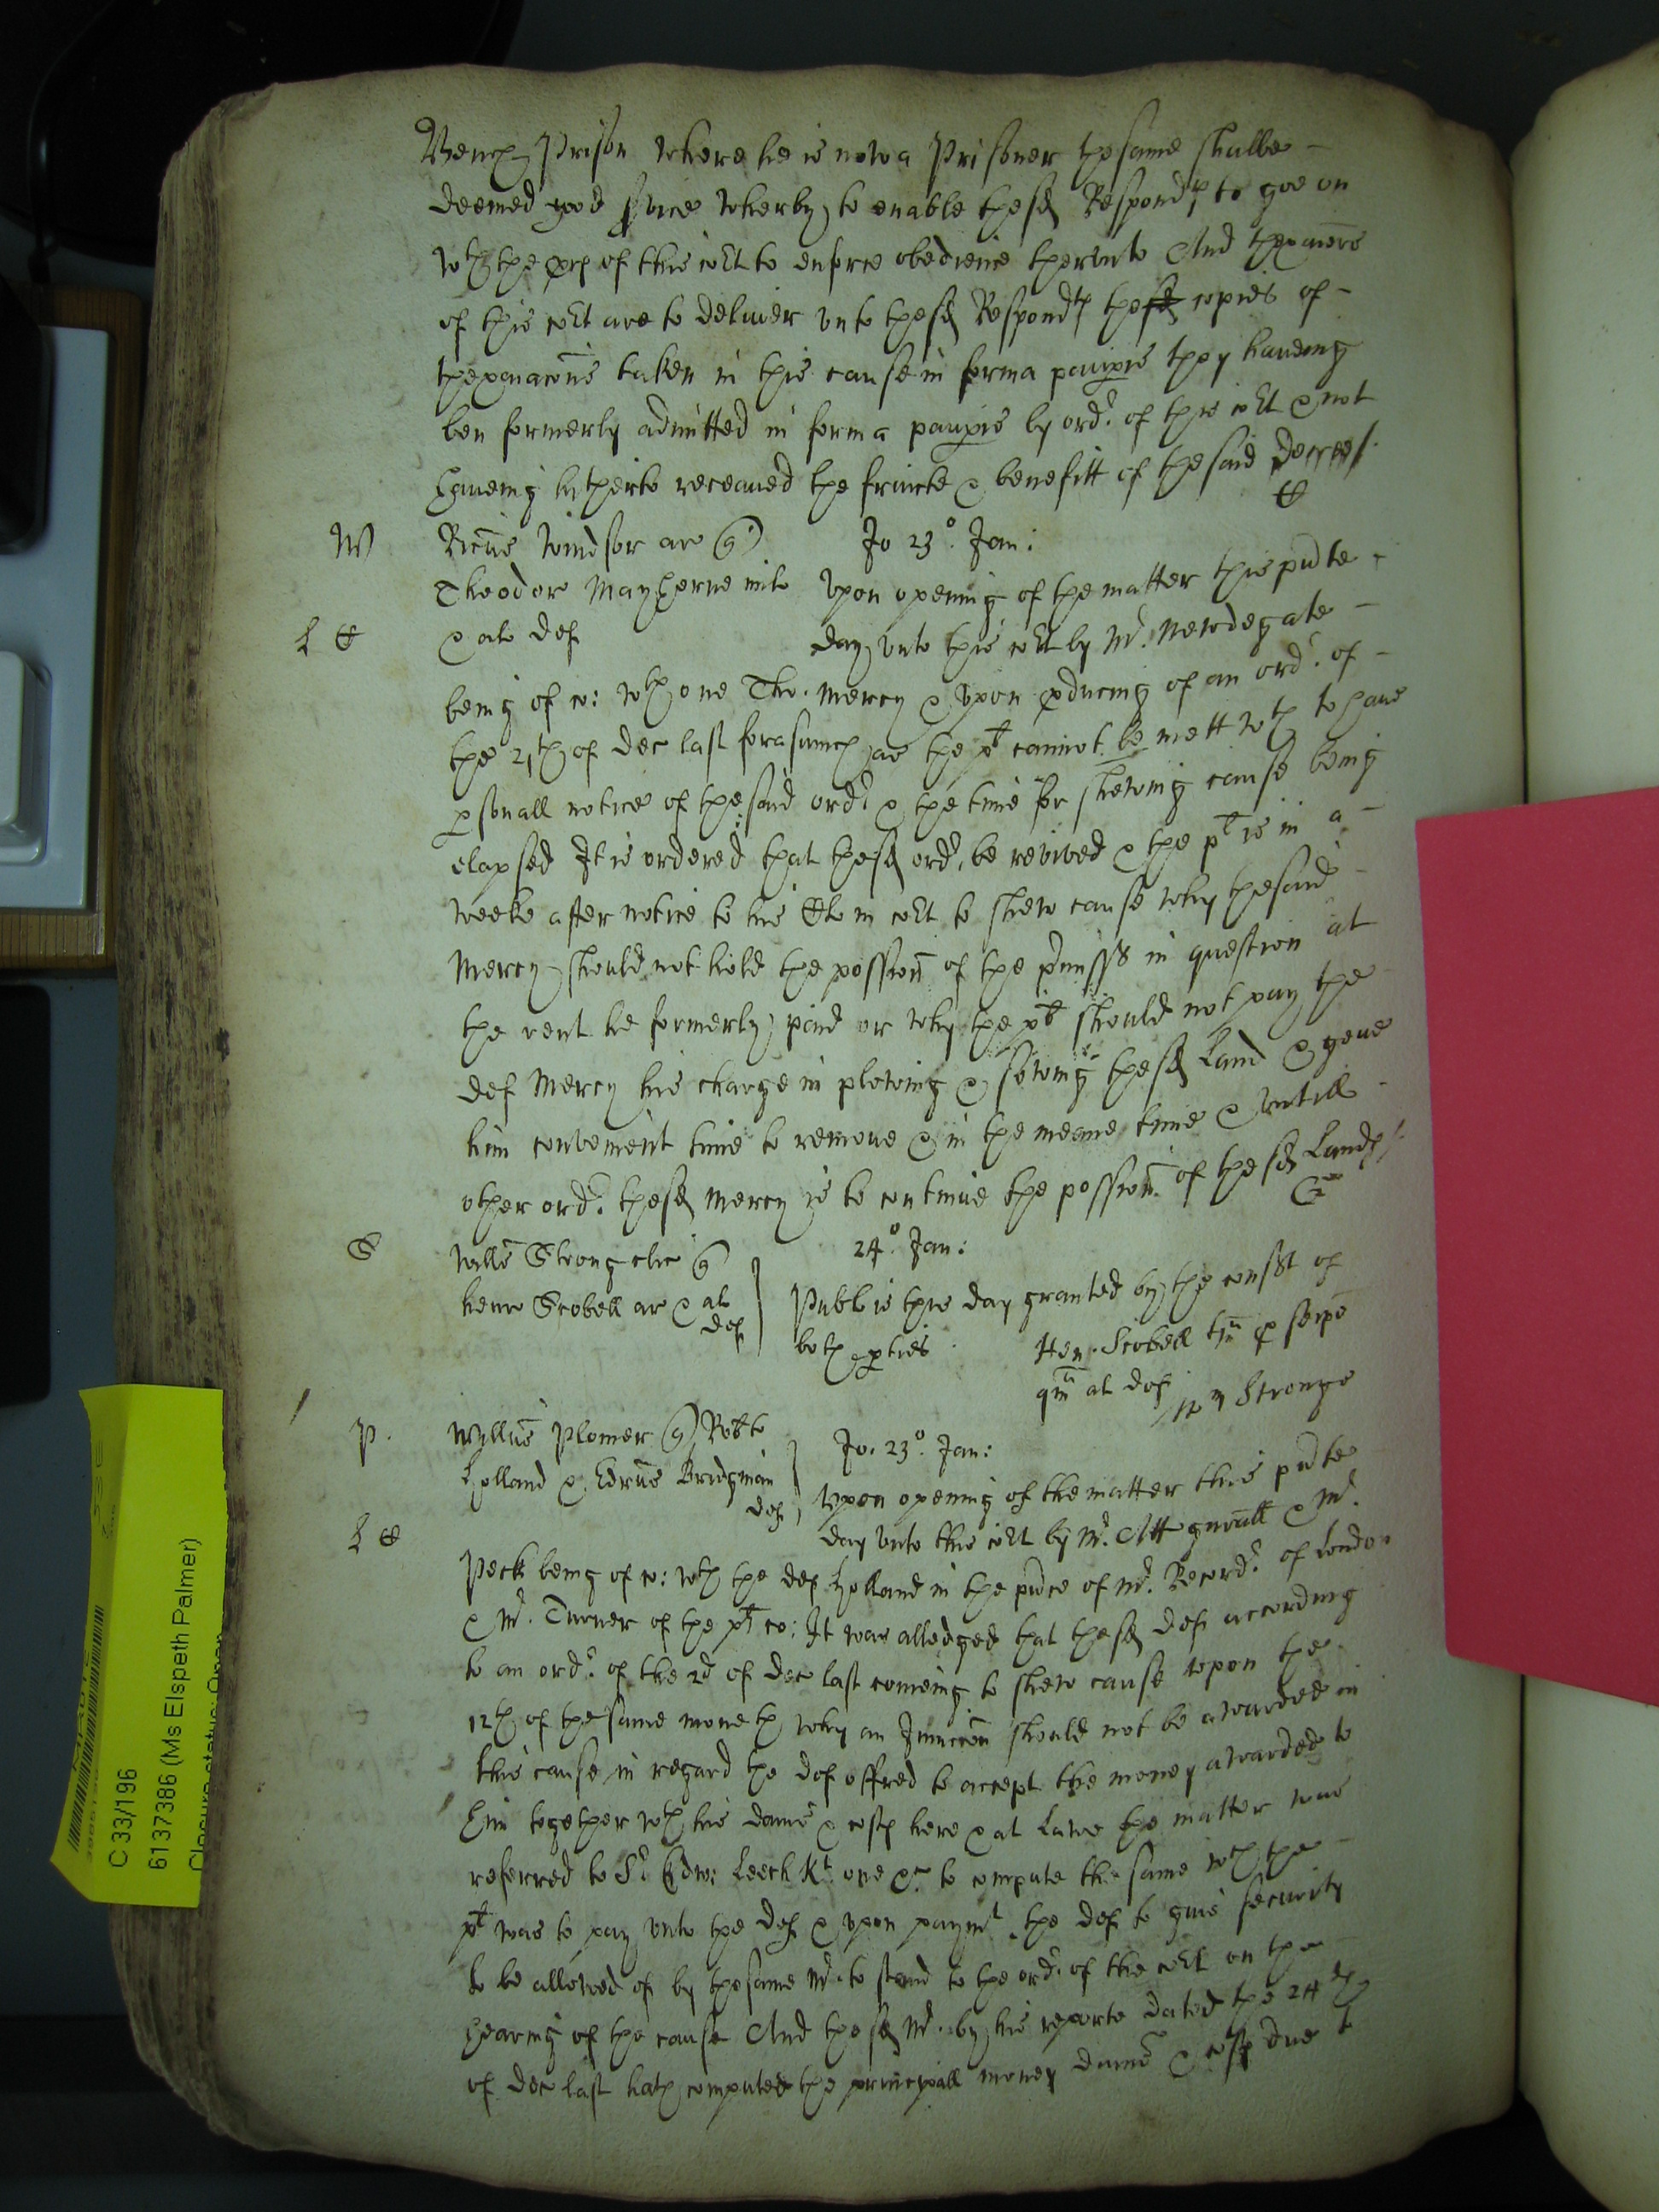 Bench Prison where he is now a Prisoner the same shalbe
deemed good service wherby to enable the sd Respondts to goe on
wth the pces of this cort to enforce obedience therunto And thexaiers
of this cort are to deliver unto the sd Respondts the sd copies of
thexaiacons taken in this cause in forma paupis they haveing
ben formerly admitted in forma paupis by ordr. of this cort & not
haveing hitherto receaved the fruicte & benefitt of the said decree
W Ricus Windsor ar q Jo 23o. Jan:
Theodor Mayherne milt Upon opening of the matter this pnte
& al def day unto this cort by Mr. Newdegate
being of co: wth one Tho. Mercy & upon pducing of an ordr. of
the 21th of Dec last forasmuch as the plt cannot be mett wth to have
psonall notice of the said ordr & the time for shewing cause being
elapsed It is ordered that the sd ordr. be revived & the plt is in a
weeke after notice to his Clt in cort to shew cause why the said
Mercy should not hold the possion of the pmisss in question at
the rent he formerly paid or why the plt should not pay the
def Mercy his charge in plowing & sowing the sd Land & geve
him convenient time to remove & in the meane time & untill
other ordr. the sd Mercy is to continue the possion of the sd Lands
S Wills Strong cler q 24o. Jan:
henr Scobell ar & al def Public this day granted by the consst of
both pties Hen. Scobell tm p seipo
qm al def
Stronge
P. Wyllus Plomer q Robto Jo. 23o. Jan:
Holland & Edrus Bridgman
def Upon opening of the matter this pnte
day unto this cort by Mr. Att gnrall & Mr.
Peck being of co: wth the def Holland in the pnce of Mr. Recordr. of London
& Mr. Turner of the plt co: It was alledged that the sd def according
to an ordr. of the 2d of Dec last comeing to shew cause upon the
12th of the same moneth why an Iniuccon should not be awarded in
this cause in regard the def offred to accept the money awarded to
him together wth his dams & costs here & at Lawe the matter was
referred to Sr Edw: Leech Kt one &c to compute the same wch the
plt was to pay unto the def & upon paymt the def to give security
to be allowed of by the same Mr. to stand to the ordr. of the cort on the
hearing of the cause And the sd Mr. by his reporte dated the 24th
of Dec last hath computed the principall money dams & costs due t
C 33/196
6137386 (Ms Elspeth Palmer)
Closure status: Open